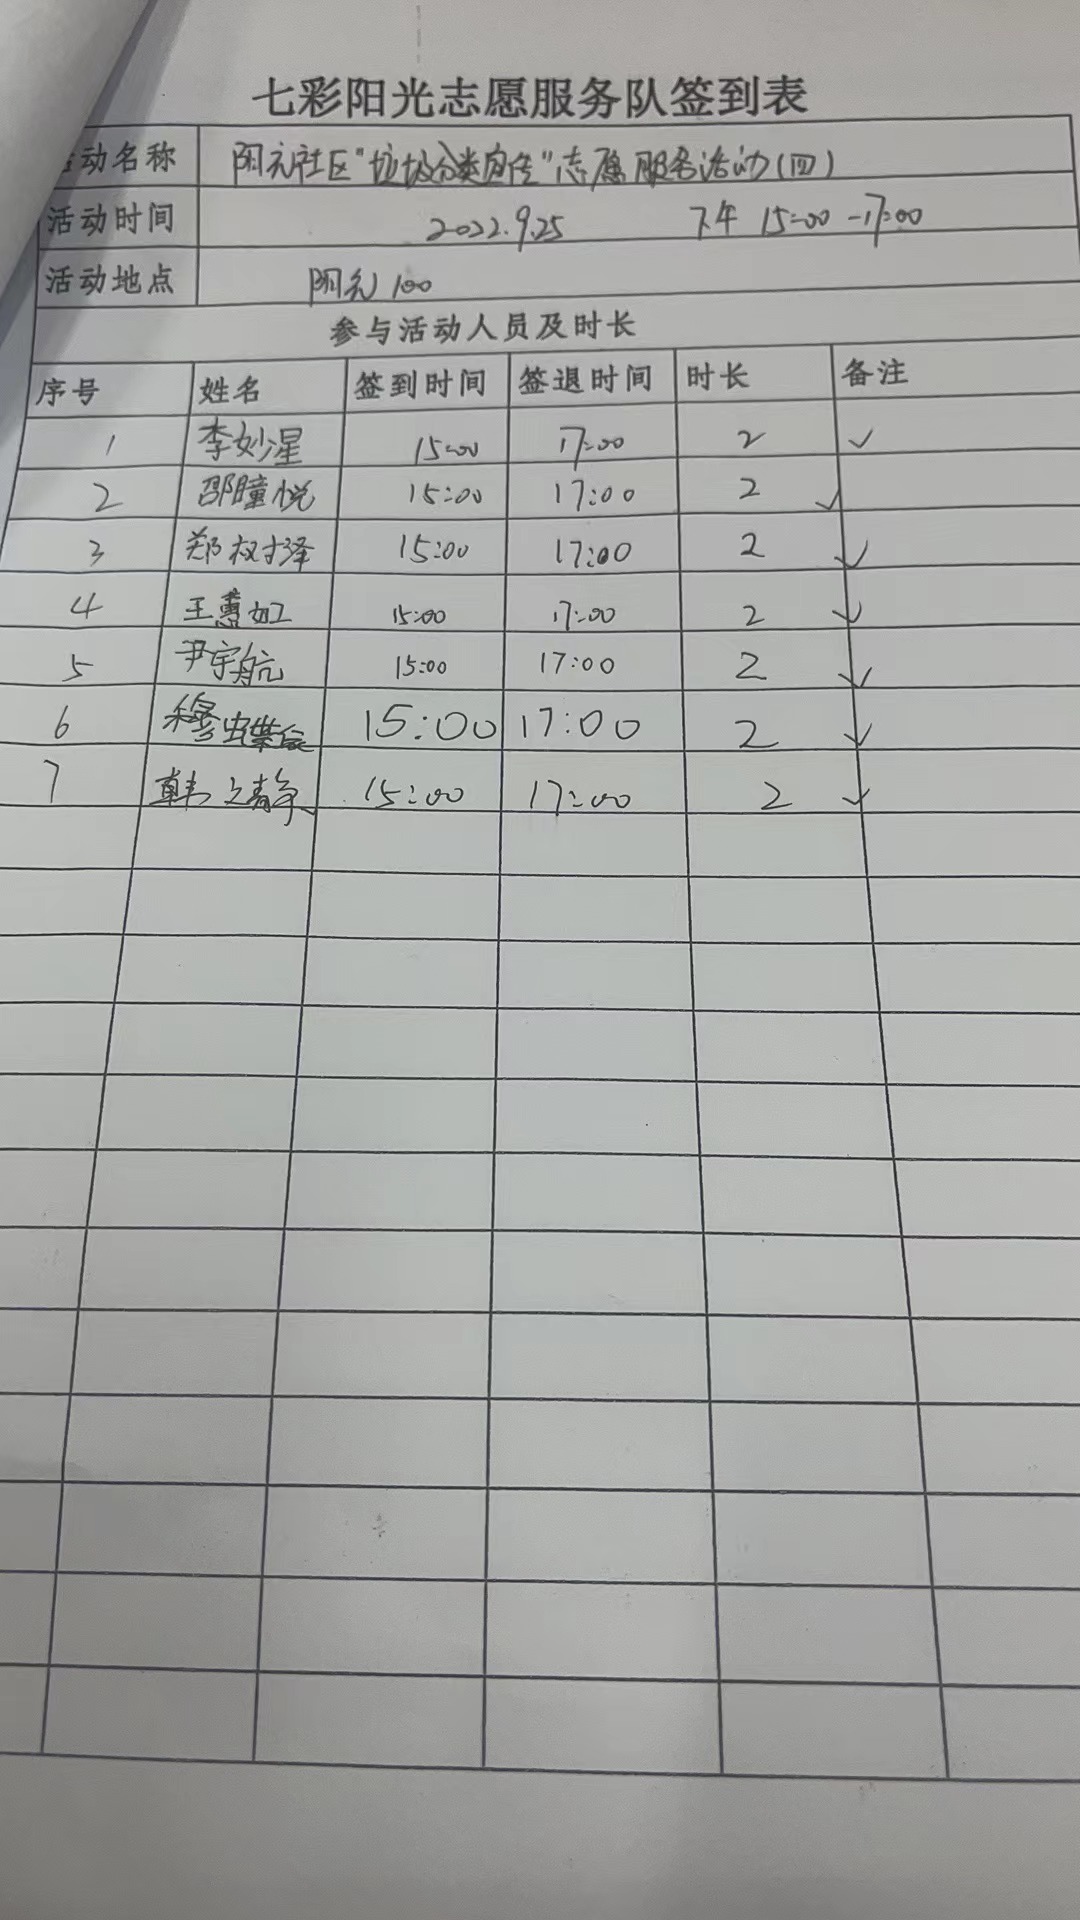 七彩阳光志愿服务队签到表
动名称 阳元社区"垃圾分类宣传"志愿服务活动(四)
活动时间 2022.9.25 下午 15:00-17:00
活动地点 阳元100
参与活动人员及时长
序号 姓名 签到时间 签退时间 时长 备注
1 李妙星 15:00 17:00 2 ✓
2 邵瞳悦 15:00 17:00 2 ✓
3 郑权泽 15:00 17:00 2 ✓
4 王惠如 15:00 17:00 2 ✓
5 尹宇航 15:00 17:00 2 ✓
6 穆 15:00 17:00 2 ✓
7 韩文静 15:00 17:00 2 ✓